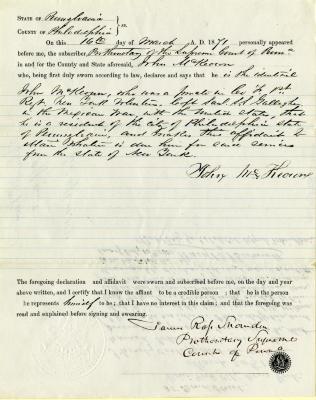 STATE OF Pennsylvania } ss.
COUNTY OF Philadelphia
On this 16th day of March A. D. 1871, personally appeared
before me, the subscriber, Prothonotary of the Supreme Court of Penna
in and for the County and State aforesaid, John McKeown
who, being first duly sworn according to law, declares and says that he is the identical
John McKeown, who was a private in Co. 1st
Regt. New York Volunteers. Capt Gallagher
in the Mexican War, with the United States, that
he is a resident of the City of Philadelphia State
of Pennsylvania, and makes this affidavit to
obtain whatever is due him for said services
from the State of New York.
John McKeown
The foregoing declaration and affidavit were sworn and subscribed before me, on the day and
year above written, and I certify that I know the affiant to be a credible person ; that he is the person
he represents himself to be ; that I have no interest in this claim ; and that the foregoing was
read and explained before signing and swearing.
James Ross Snowden
Prothonotary Supreme
Court of Penna